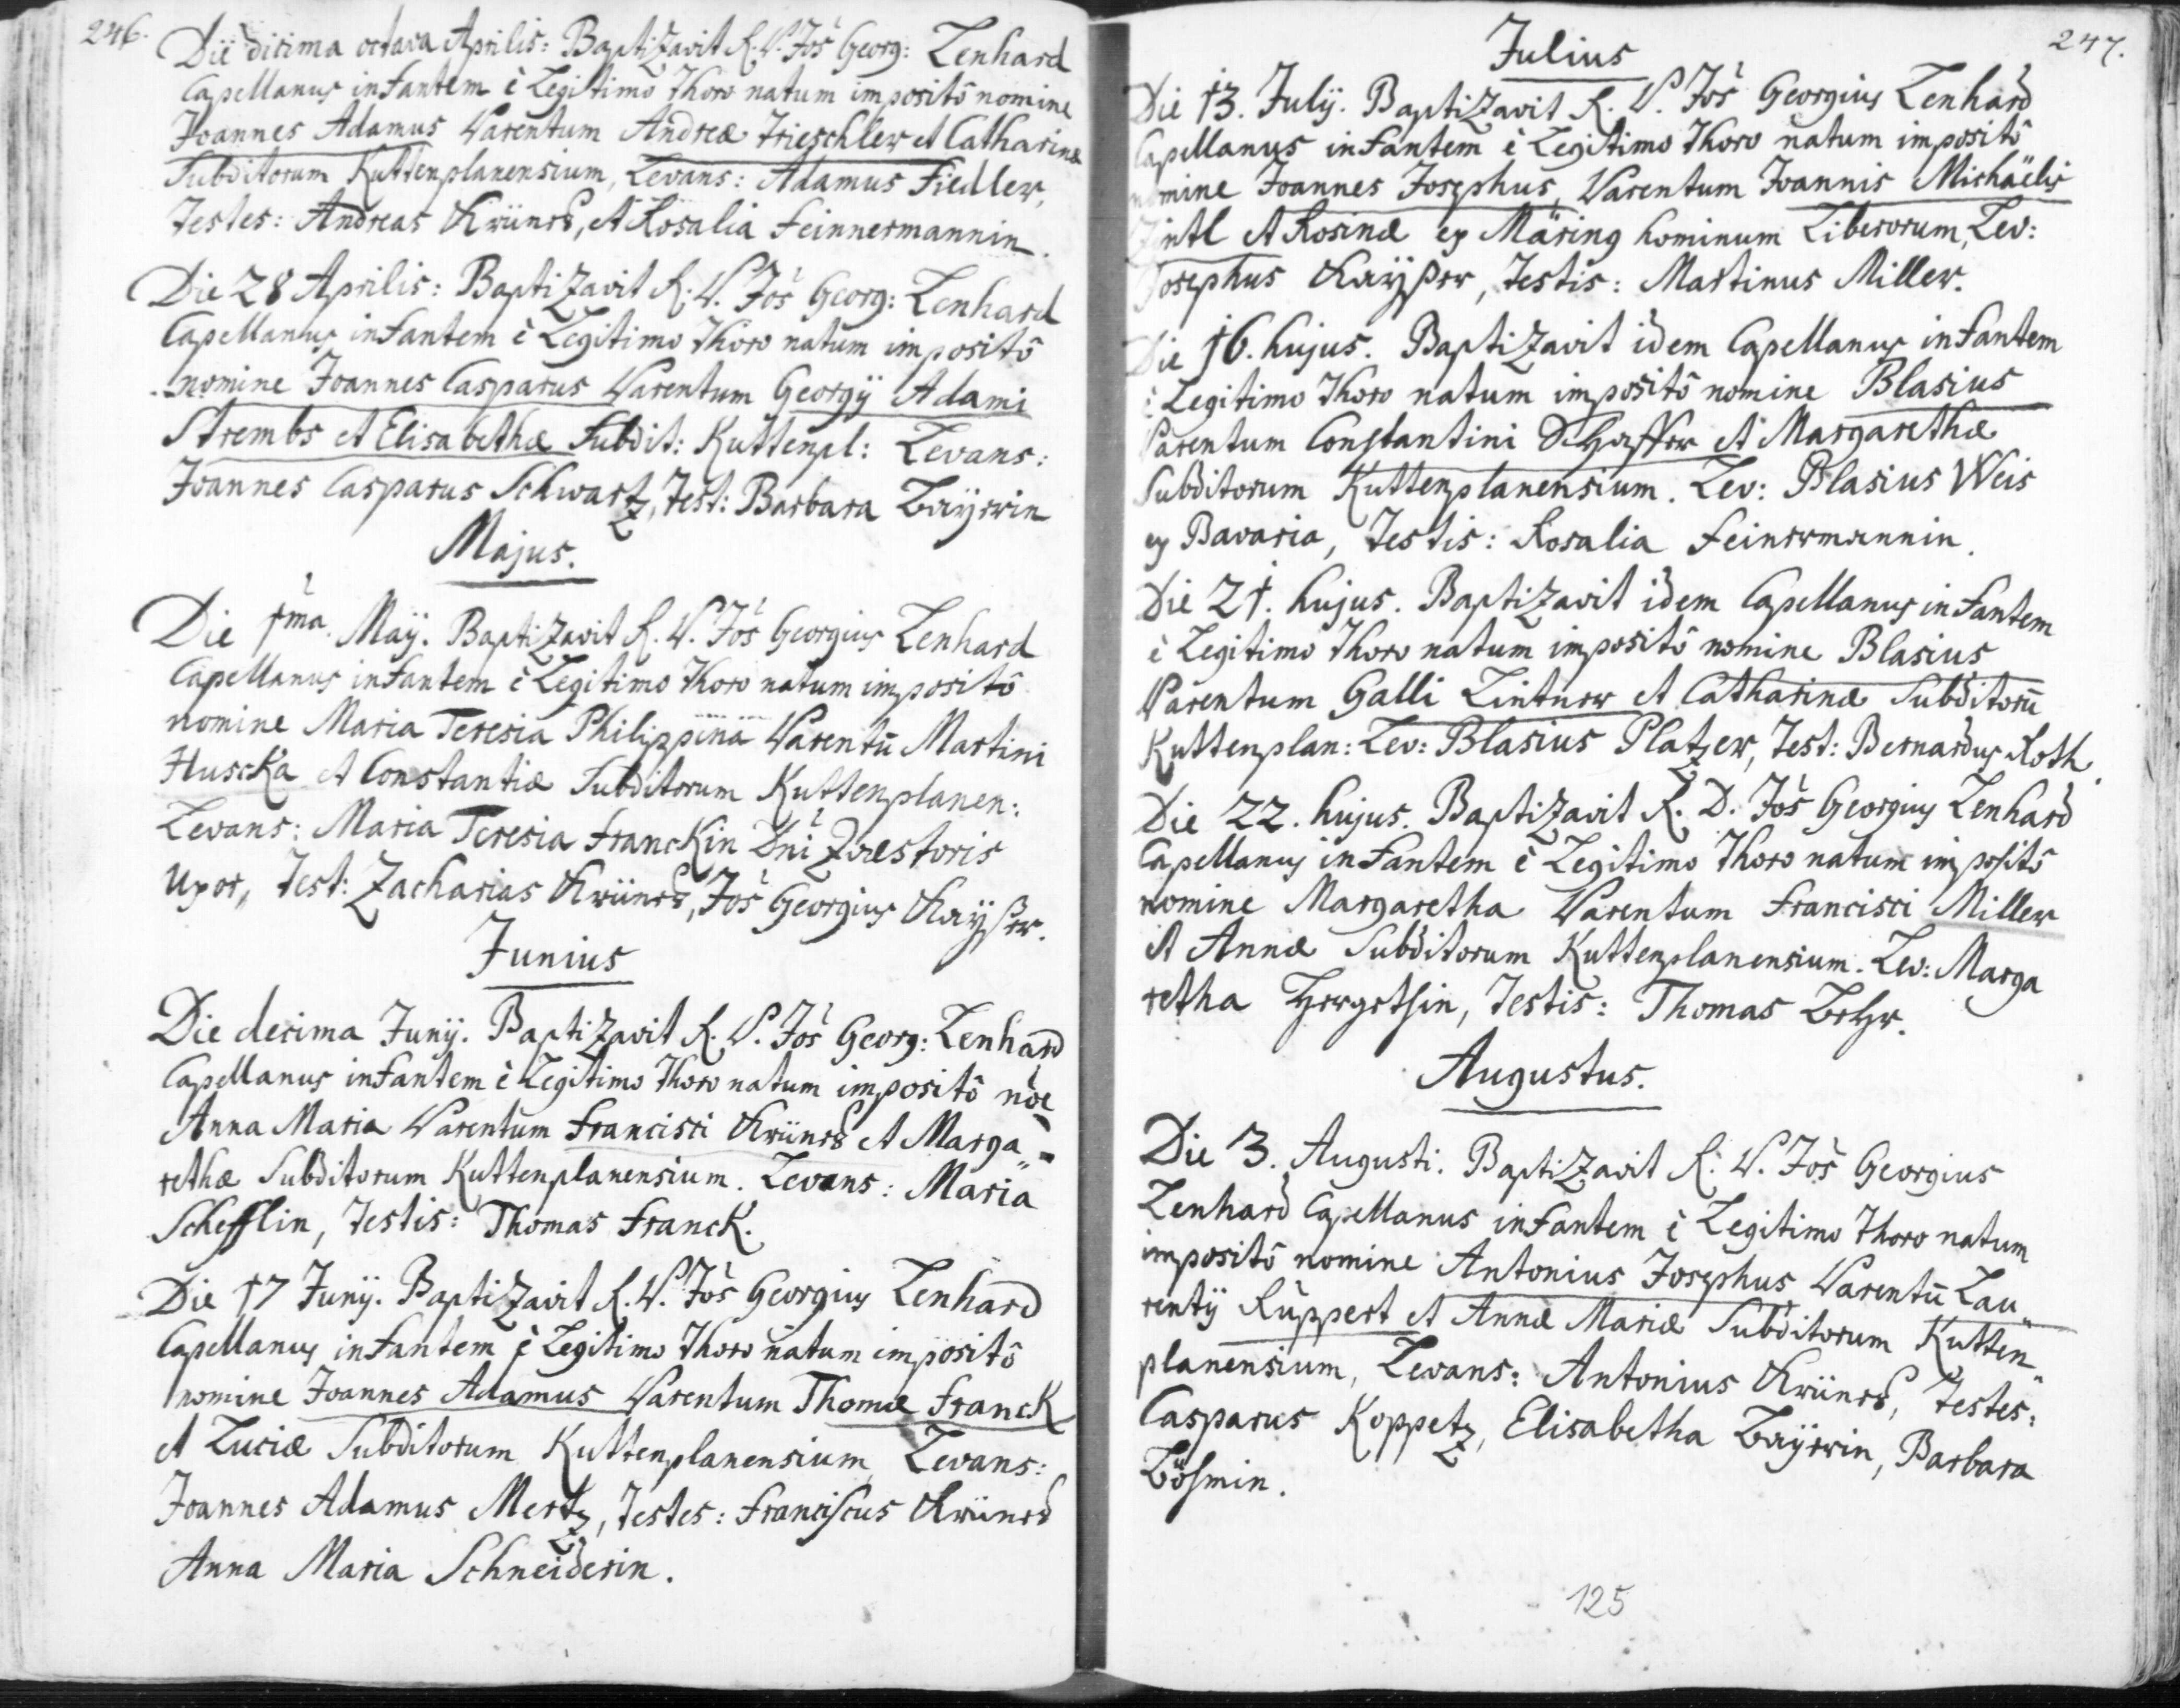 246.
Die decima octava Aprilis: Baptizavit R. P. Jos̀ Georg: Lenhard
Capellanus infantem è Legitimo Thoro natum impositô nomine
Joannes Adamus Parentum Andreæ Trieschler et Catharinæ
Subditorum Kuttenplanensium, Levans: Adamus Fiedler,
Testes: Andreas Khüner, et Rosalia Feinnermannin.
Die 28 Aprilis: Baptizavit R. P. Jos̀ Georg: Lenhard
Capellanus infantem è Legitimo Thoro natum impositô
nomine Joannes Casparus Parentum Georgÿ Adami
Strembs et Elisabethæ Subdit: Kuttenpl: Levans:
Joannes Casparus Schwartz, Test: Barbara Bayrin
Majus.
Die 1ma. Maÿ. Baptizavit R. P. Jos̀ Georgius Lenhard
Capellanus infantem è Legitimo Thoro natum impositô
nomine Maria Teresia Philippina Parentū Martini
Huscka et Constantiæ Subditorum Kuttenplanen:
Levans: Maria Teresia Franckin Dnì Quæstoris
Uxor, Test: Zacharias Khüner, Jos̀ Georgius Kayßer.
Junius
Die decima Junÿ. Baptizavit R. P. Jos̀ Georg: Lenhard
Capellanus infantem è Legitimo Thoro natum impositô nòe
Anna Maria Parentum Francisci Khüner et Marga„
rethæ Subditorum Kuttenplanensium. Levans: Maria
Schefflin, Testis: Thomas Franck.
Die 17 Junÿ. Baptizavit R. P. Jos̀ Georgius Lenhard
Capellanus infantem è Legitimo Thoro natum impositô
nomine Joannes Adamus Parentum Thomæ Franck
et Luciæ Subditorum Kuttenplanensium Levans:
Joannes Adamus Mertz, Testes: Franciscus Khüner
Anna Maria Schneiderin.
247.
Julius
Die 13. Julÿ. Baptizavit R. P. Jos̀ Georgius Lenhard
Capellanus infantem è Legitimo Thoro natum impositô
nomine Joannes Josephus, Parentum Joannis Michäelis
Zintl et Rosinæ ex Märing hominum Liberorum, Lev:
Josephus Kayßer, Testis: Martinus Miller.
Die 16. hujus. Baptizavit idem Capellanus infantem
è Legitimo Thoro natum impositô nomine Blasius
Parentum Constantini Schaffer et Margarethæ
Subditorum Kuttenplanensium. Lev: Blasius Weis
ex Bavaria, Testis: Rosalia Feinermannin.
Die 21. hujus. Baptizavit idem Capellanus infantem
è Legitimo Thoro natum impositô nomine Blasius
Parentum Galli Lintner et Catharinæ Subditorū
Kuttenplan: Lev: Blasius Platzer, Test: Bernardus Roth.
Die 22. hujus. Baptizavit R. D. Jos̀ Georgius Lenhard
Capellanus infantem è Legitimo Thoro natum impositô
nomine Margaretha Parentum Francisci Miller
et Annæ Subditorum Kuttenplanensium. Lev: Marga
retha Hergethin, Testis: Thomas Beher.
Augustus.
Die 3. Augusti. Baptizavit R. P. Jos̀ Georgius
Lenhard Capellanus infantem è Legitimo Thoro natum
impositô nomine Antonius Josephus Parentū Lau„
rentÿ Ruppert et Annæ Mariæ Subditorum Kutten„
planensium, Levans: Antonius Khüner, Testes:
Casparus Koppetz, Elisabetha Bayrin, Barbara
Bösmin.
125